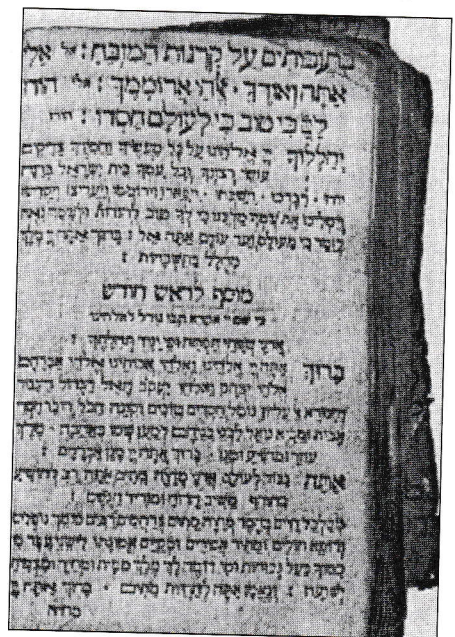 בעבותים על קרנות המזבח : אלי
אתה ואודך · אלהי ארוממך : הודו
כי טוב כי לעולם חסדו :
יהללוך יי אלהינו על כל מעשיך וחסידיך צדיקים
עושי רצונך וכל עמך בית ישראל ברנה
יחד ·
כי לך טוב להודות ולשמך נאה
לזמר כי מעולם ועד עולם אתה אל : ברוך אתה יי מלך
מהולל בתשבחות :
מוסף לראש חודש
כי שם יי אקרא הבו גודל לאלהינו
אדני שפתי תפתח ופי יגיד תהלתך :
ברוך אתה יי אלהינו ואלהי אבותינו אלהי אברהם
אלהי יצחק ואלהי יעקב האל הגדול הגבור
והנורא אל עליון גומל חסדים טובים וקונה הכל וזוכר חסדי
אבות ומביא גואל לבני בניהם למען שמו באהבה · מלך
עוזר ומושיע ומגן : ברוך אתה יי מגן אברהם :
אתה גבור לעולם אדני מחיה מתים אתה רב להושיע
בחורף משיב הרוח ומוריד הגשם :
מכלכל חיים בחסד מחיה מתים ברחמים רבים סומך נופלים
ורופא חולים ומתיר אסורים ומקיים אמונתו לישיני עפר מי
כמוך בעל גבורות ומי דומה לך מלך ממית ומחיה ומצמיח
ישועה : ונאמן אתה להחיות מתים · ברוך אתה יי
מחיה